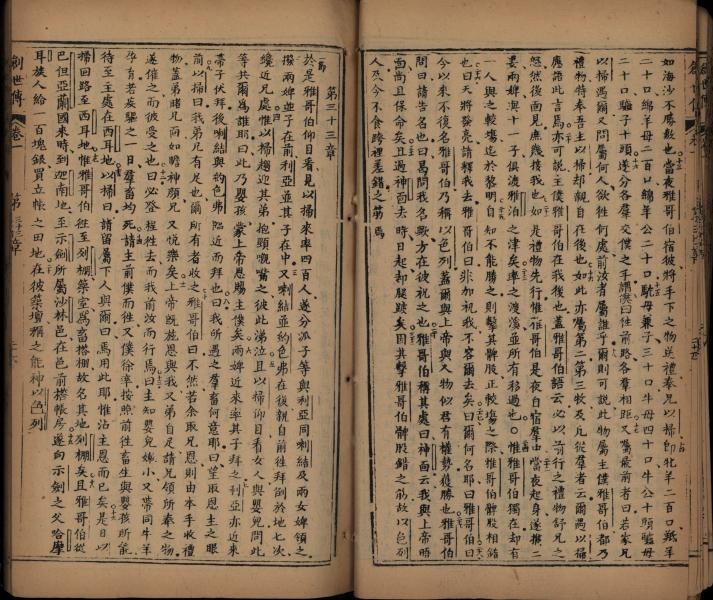 如海沙不勝數也當夜雅哥伯宿彼將手下之物送禮奉兄以掃即牝羊二百口羝羊
二十口綿羊母二百口綿羊公二十口駝母兼子三十口牛母四十口牛公十頭驢母
二十口驢子十頭遂分各羣交僕之手謂僕曰往前路各羣相距又囑最前者曰若家兄
以掃遇爾又問屬何人欲往何處前汝者屬誰乎爾則可說此物屬主僕雅哥伯都乃
禮物特奉吾主以掃却親自在後也如此亦囑第二第三教及凡從羣者云爾遇以掃
應語此言焉亦可說主僕雅哥伯在我後也蓋雅哥伯語云必以前行之禮物舒兄之
怒然後面見庶幾接我也如是禮物先行惟雅哥伯是夜自宿羣中當夜起身遂攜二
妻兩婢與十一子俱渡雅泊之津矣率之渡溪並所有移過也惟雅哥伯獨在却有
一人與之較塲迄於黎明自知不能勝之則擊其髀股正較塲之際雅哥伯髀股相錯
也曰天將發亮請釋我去雅哥伯曰非如祝我不容爾去矣曰爾何名耶曰雅哥伯曰
今以來不復名雅哥伯乃稱以色列蓋爾與上帝與人物似君有權勢獲勝也雅哥伯
問曰請告名也曰曷問我名歟方在彼祝之也雅哥伯稱其處曰神面云我與上帝時
面而且保命矣且過神面去時日起却腿跛矣因其擊雅哥伯髀股錯之筋故以色列
人及今不食胯裡差錯之筋焉
創世傳
卷一
第三十三章
第三十三章
於是雅哥伯仰目看見以掃來率四百人遂分派子等與利亞同喇結及兩女婢領之
攘兩婢並子在前利亞並其子在中又喇結並約色弗在後親自前往拜倒於地七次
纔近兄處惟以掃趨迎其弟抱頸嘴之彼此涕泣且以掃仰目看女人與嬰兒問此
等共爾爲誰耶曰此乃嬰孩蒙上帝恩賜主僕矣兩婢近來率其子拜之利亞亦近來
帶子伏拜後喇結與約色弗臨近而拜也曰我所遇之羣畜何意耶曰望取恩主之眼
前以掃曰我弟兄有足也爾所有者收之雅哥伯曰不然若余取兄恩則由本手收禮
物蓋弟睹兄面如瞻神顏兄又悅樂矣上帝既施恩與我又弟自足請兄領所奉之物
遂催之而彼受之也曰必登程往去而我前汝而行焉曰主知嬰兒嫩小又帶同牛羊
孕育若矣驅之一日羣畜均死請主前僕而往又僕徐率按照前往畜生與嬰孩所能
待至主處在西耳地以掃曰請留屬下人與爾曰焉用此耶惟沾主恩而已矣是日以
掃回路至西耳地惟雅哥伯往至列棚築室爲畜搭棚故名其地列棚矣且雅哥伯從
巴但亞蘭國來時到迦南地至示劍所屬沙林邑在邑前搭帳房遂向示劍之父哈摩
耳族人給一百塊銀買立帳之田地在彼築壇稱之能神以色列